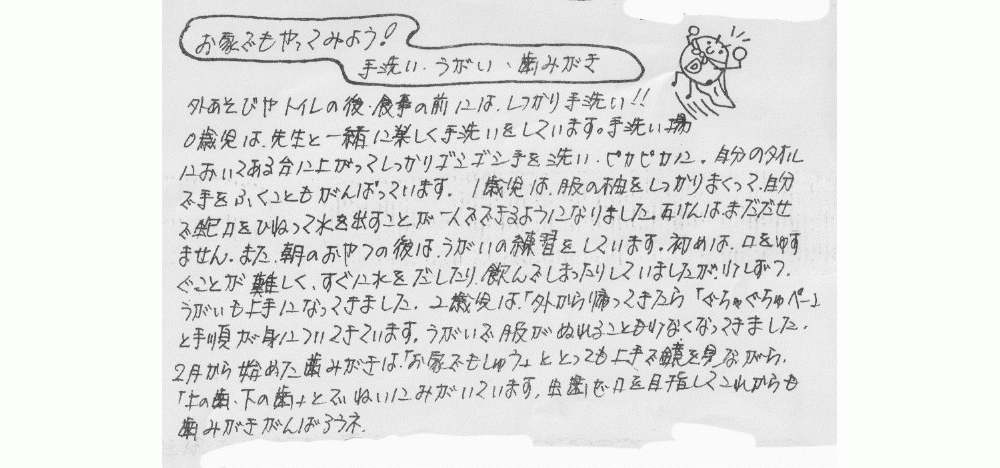 お家でもやってみよう!
手洗い・うがい・歯みがき
外あそびやトイレの後、食事の前には、しっかり手洗い!!
0歳児は、先生と一緒に楽しく手洗いをしています。手洗い場
においてある台に上がってしっかりゴシゴシ手を洗い、ピカピカに。自分のタオル
で手をふくこともがんばっています。1歳児は、服の袖をしっかりまくって、自分
で蛇口をひねって水を出すことが一人でできるようになりました。石けんはまだだせ
ません。また、朝のおやつの後は、うがいの練習をしています。初めは、口をゆす
ぐことが難しく、すぐに水をだしたり、飲んでしまったりしていましたが、少しずつ、
うがいも上手になってきました。2歳児は、「外から帰ってきたら「ぐちゅぐちゅぺー」
と手順が身についてきています。うがいで服がぬれることも少なくなってきました。
2月から始めた歯みがきは、「お家でもしゅう」ととっても上手で鏡を見ながら、
「上の歯、下の歯」とていねいにみがいています。虫歯ゼロを目指してこれからも
歯みがきがんばろうネ。